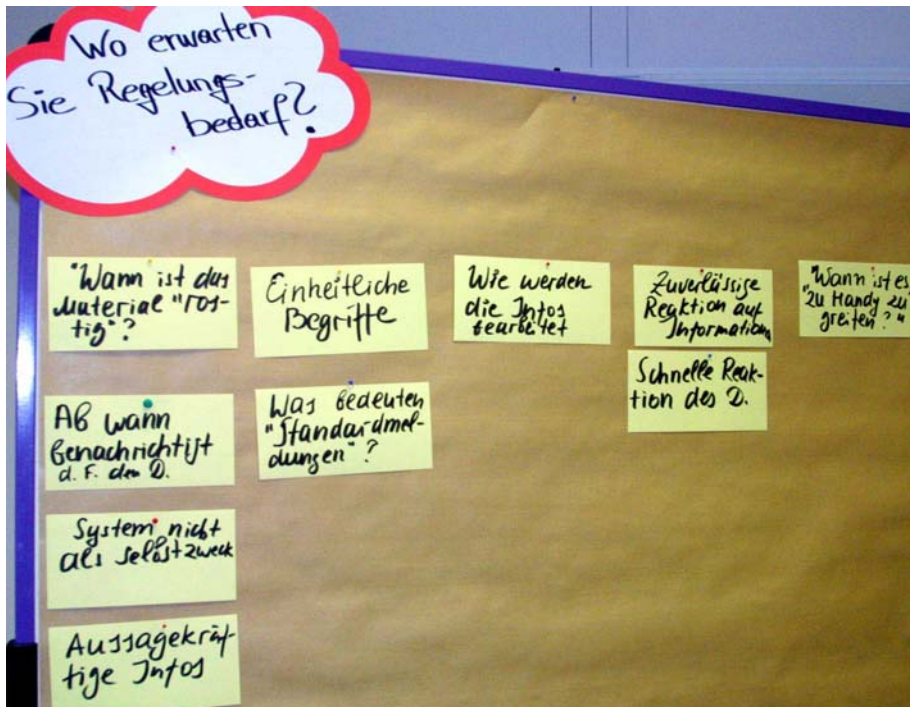 Wo erwarten
Sie Regelungs-
bedarf?
"Wann ist das
Material "ros-
tig"?
Ab wann
benachrichtigt
d. F. den D.
System nicht
als Selbstzweck
Aussagekräf-
tige Infos
Einheitliche
Begriffe
Was bedeuten
"Standardmel-
dungen"?
Wie werden
die Infos
bearbeitet
Zuverlässige
Reaktion auf
Information
Schnelle Reak-
tion des D.
"Wann ist es
"zu Handy zu
greifen?"